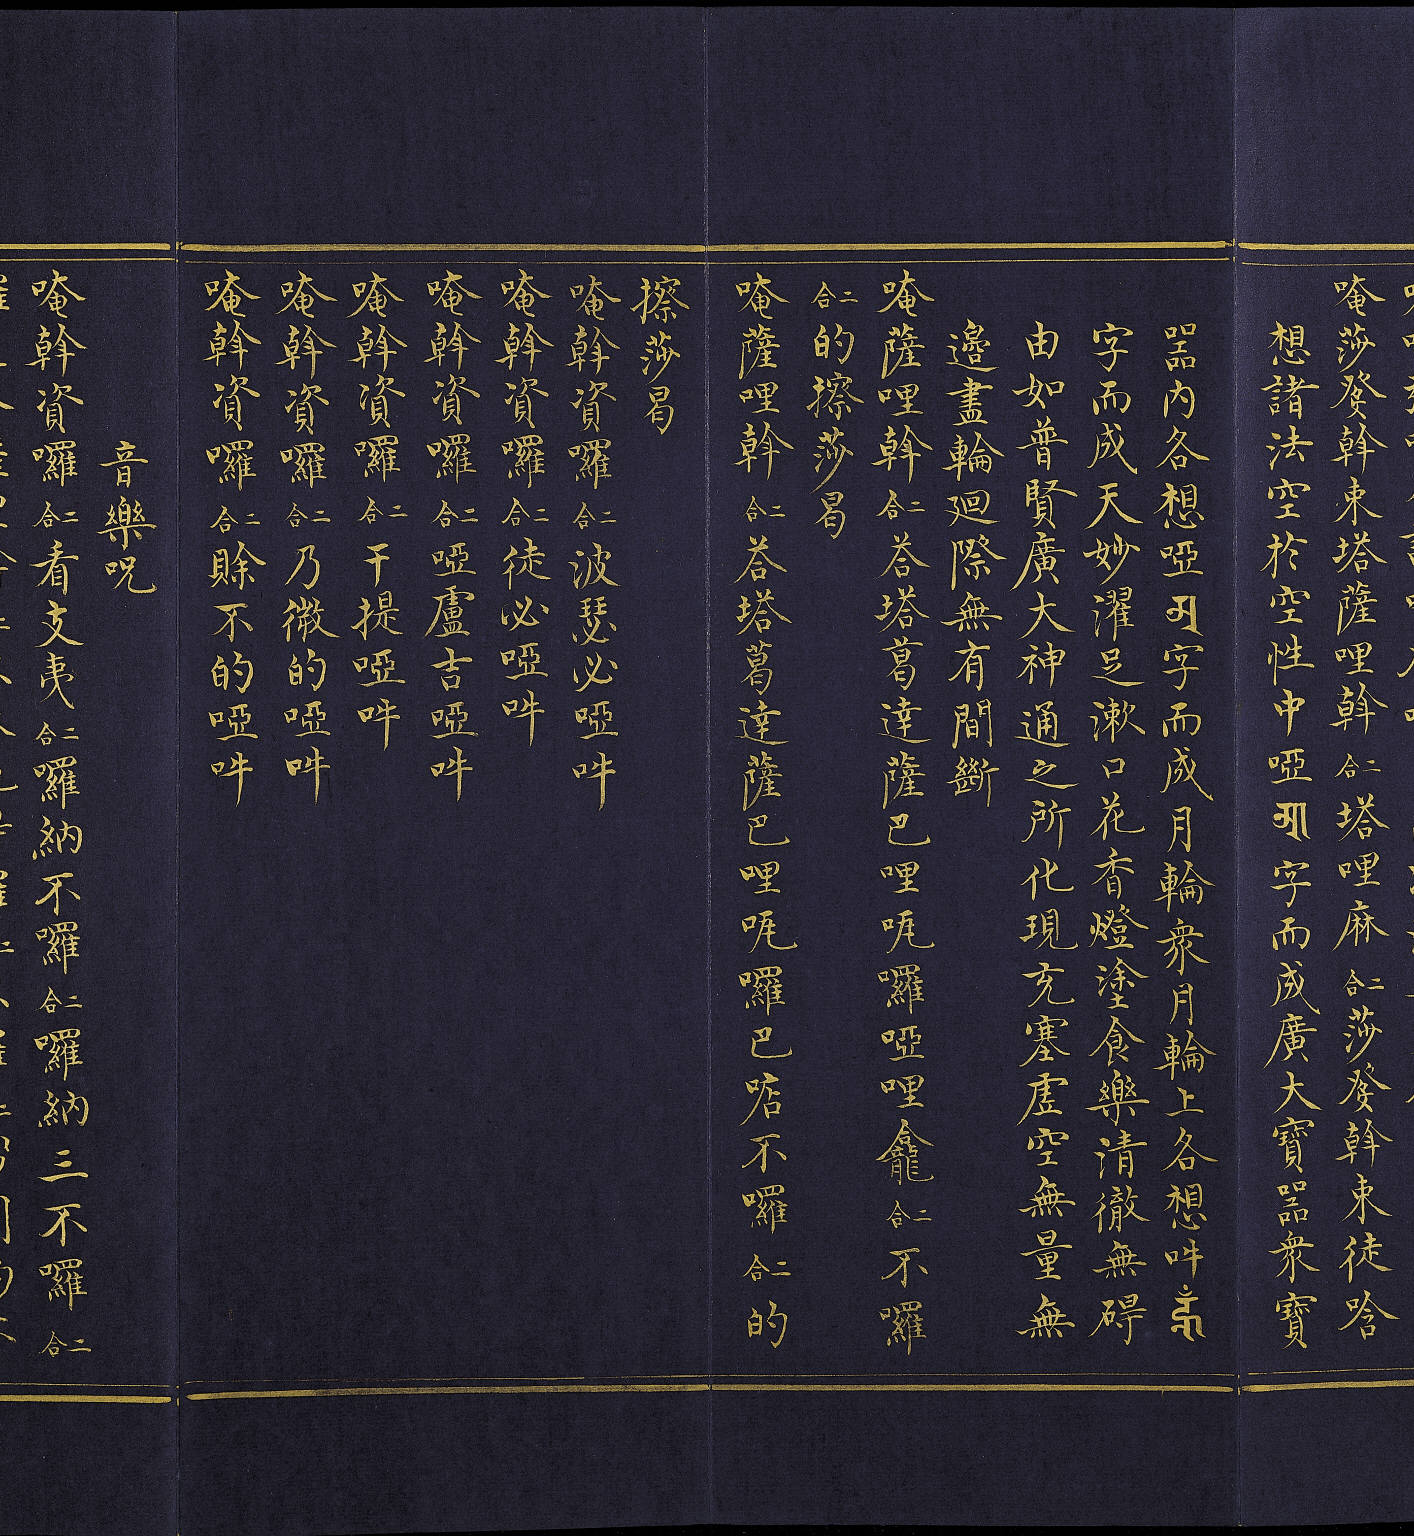 唵莎癹斡束塔薩哩斡二合塔哩麻二合莎癹斡束徒唅
想諸法空於空性中啞𑖁字而成廣大寶器衆寶
器內各想啞𑖀字而成月輪衆月輪上各想吽
字而成天妙濯足漱口花香燈塗食樂清徹無碍
由如普賢廣大神通之所化現充塞虛空無量無
邊盡輪廻際無有間斷
唵薩哩斡二合荅塔葛達薩巴哩咓囉啞哩龕二合不囉
二合的擦莎曷
唵薩哩斡二合荅塔葛達薩巴哩咓囉巴㖠不囉二合的
擦莎曷
唵斡資囉二合波瑟必啞吽
唵斡資囉二合徒必啞吽
唵斡資囉二合啞盧吉啞吽
唵斡資囉二合干提啞吽
唵斡資囉二合乃微的啞吽
唵斡資囉二合賒不的啞吽
音樂呪
唵斡資囉二合看支夷二合囉納不囉二合囉納三不囉二合